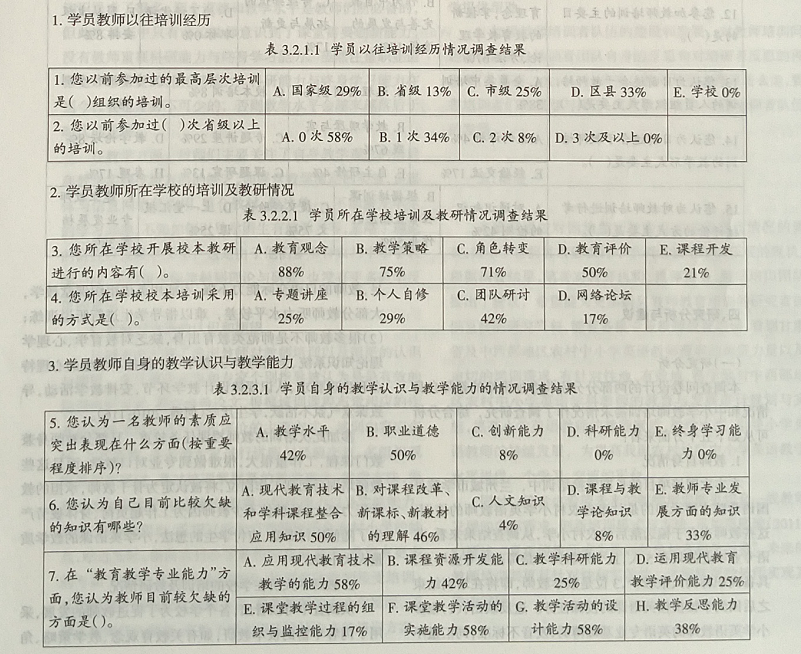 1. 学员教师以往培训经历
表 3.2.1.1 学员以往培训经历情况调查结果
1. 您以前参加过的最高层次培训
是( )组织的培训。
A. 国家级 29% B. 省级 13% C. 市级 25% D. 区县 33% E. 学校 0%
2. 您以前参加过( )次省级以上
的培训。
A. 0 次 58% B. 1 次 34% C. 2 次 8% D. 3 次及以上 0%
2. 学员教师所在学校的培训及教研情况
表 3.2.2.1 学员所在学校培训及教研情况调查结果
3. 您所在学校开展校本教研
进行的内容有( )。
A. 教育观念 B. 教学策略 C. 角色转变 D. 教育评价 E. 课程开发
88% 75% 71% 50% 21%
4. 您所在学校校本培训采用
的方式是( )。
A. 专题讲座 B. 个人自修 C. 团队研讨 D. 网络论坛
25% 29% 42% 17%
3. 学员教师自身的教学认识与教学能力
表 3.2.3.1 学员自身的教学认识与教学能力的情况调查结果
5. 您认为一名教师的素质应
突出表现在什么方面(按重要
程度排序)?
A. 教学水平 B. 职业道德 C. 创新能力 D. 科研能力 E. 终身学习能
42% 50% 8% 0% 力 0%
6. 您认为自己目前比较欠缺
的知识有哪些?
A. 现代教育技术
和学科课程整合
应用知识 50%
B. 对课程改革、
新课标、新教材
的理解 46%
C. 人文知识
4%
D. 课程与教
学论知识
8%
E. 教师专业发
展方面的知识
33%
7. 在“教育教学专业能力”方
面,您认为教师目前较欠缺的
方面是()。
A. 应用现代教育技术
教学的能力 58%
B. 课程资源开发能
力 42%
C. 教学科研能力
25%
D. 运用现代教育
教学评价能力 25%
E. 课堂教学过程的组
织与监控能力 17%
F. 课堂教学活动的
实施能力 58%
G. 教学活动的设
计能力 58%
H. 教学反思能力
38%